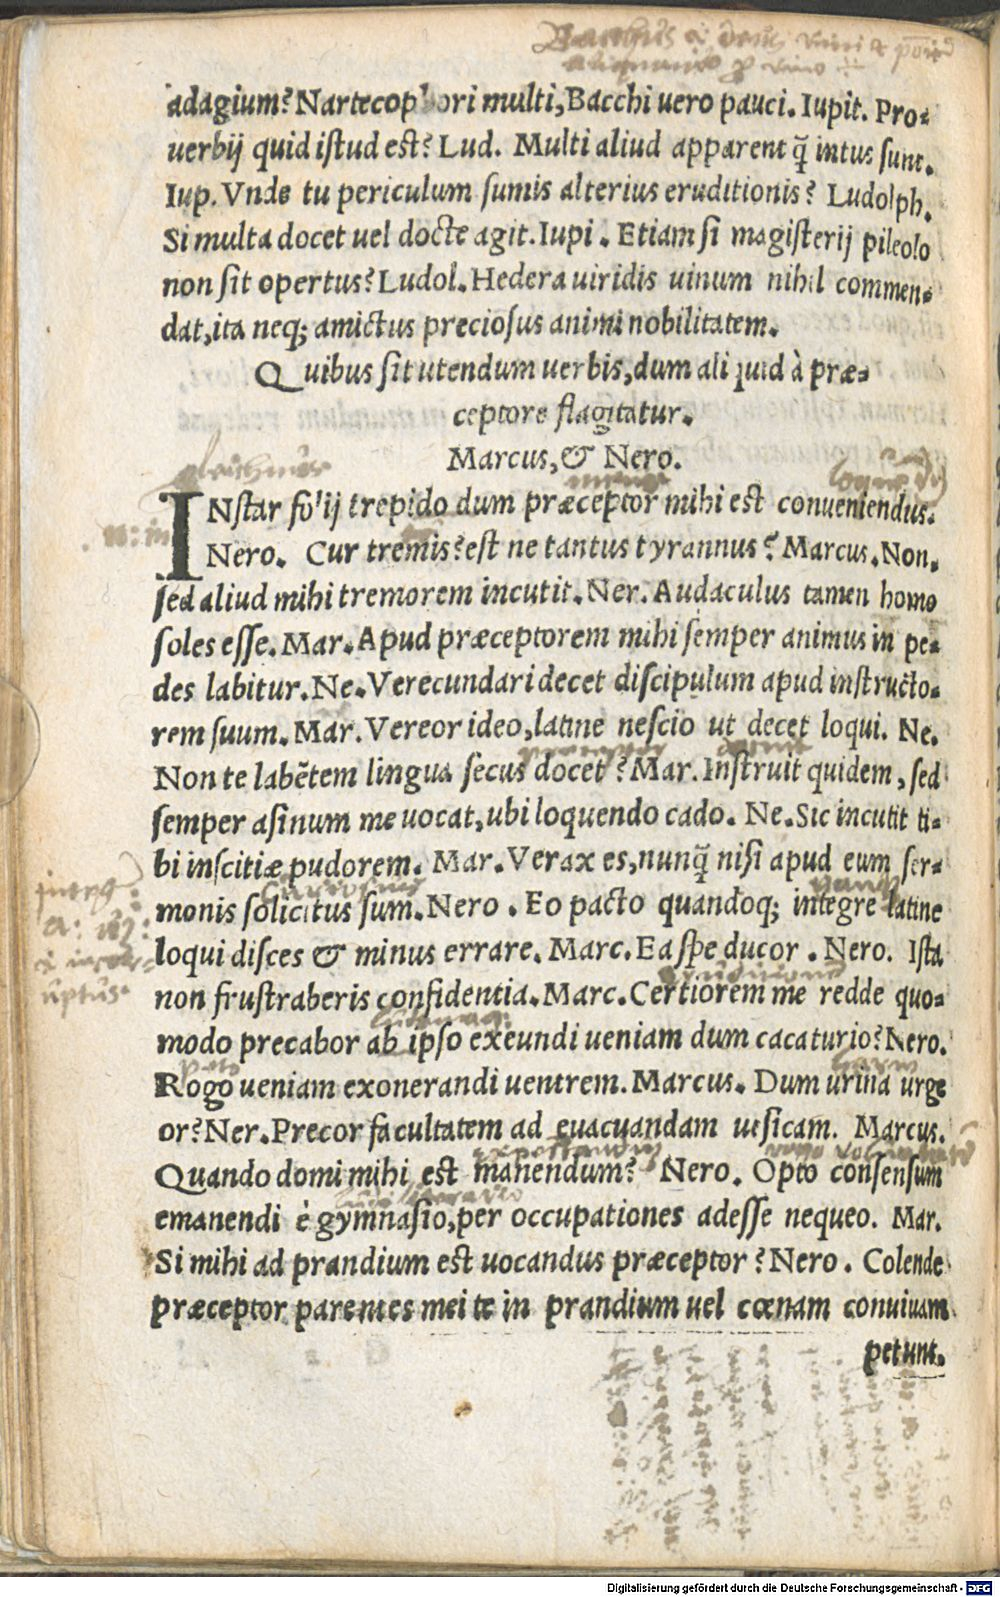 Bacchus e deus vini
adagium? Nartecophori multi, Bacchi uero pauci. Iupit. Pro-
uerbij quid istud est? Lud. Multi aliud apparent q̃ intus sunt.
Iup. Vnde tu periculum sumis alterius eruditionis? Ludolph.
Si multa docet uel docte agit. Iupi. Etiam si magisterij pileolo
non sit opertus? Ludol. Hedera uiridis uinum nihil commen-
dat, ita neq; amictus preciosus animi nobilitatem.
Quibus sit utendum uerbis, dum aliquid à præ-
ceptore flagitatur.
Marcus, & Nero.
INstar folij trepido dum præceptor mihi est conueniendus.
Nero. Cur tremis? est ne tantus tyrannus? Marcus. Non,
sed aliud mihi tremorem incutit. Ner. Audaculus tamen homo
soles esse. Mar. Apud præceptorem mihi semper animus in pe-
des labitur. Ne. Verecundari decet discipulum apud instructo-
rem suum. Mar. Vereor ideo, latine nescio ut decet loqui. Ne.
Non te labẽtem lingua secus docet? Mar. Instruit quidem, sed
semper asinum me uocat, ubi loquendo cado. Ne. Sic incutit ti-
bi inscitiæ pudorem. Mar. Verax es, nunq̃ nisi apud eum ser-
monis solicitus sum. Nero. Eo pacto quandoq; integre latine
loqui disces & minus errare. Marc. Ea spe ducor. Nero. Ista
non frustraberis confidentia. Marc. Certiorem me redde quo-
modo precabor ab ipso exeundi ueniam dum cacaturio? Nero.
peto
Rogo ueniam exonerandi uentrem. Marcus. Dum urina urge
or? Ner. Precor facultatem ad euacuandam uesicam. Marcus.
Quando domi mihi est manendum? Nero. Opto consensum
emanendi è gymnasio, per occupationes adesse nequeo. Mar.
Si mihi ad prandium est uocandus præceptor? Nero. Colende
præceptor parentes mei te in prandium uel cœnam conuiuam
petunt.
Digitalisierung gefördert durch die Deutsche Forschungsgemeinschaft - DFG